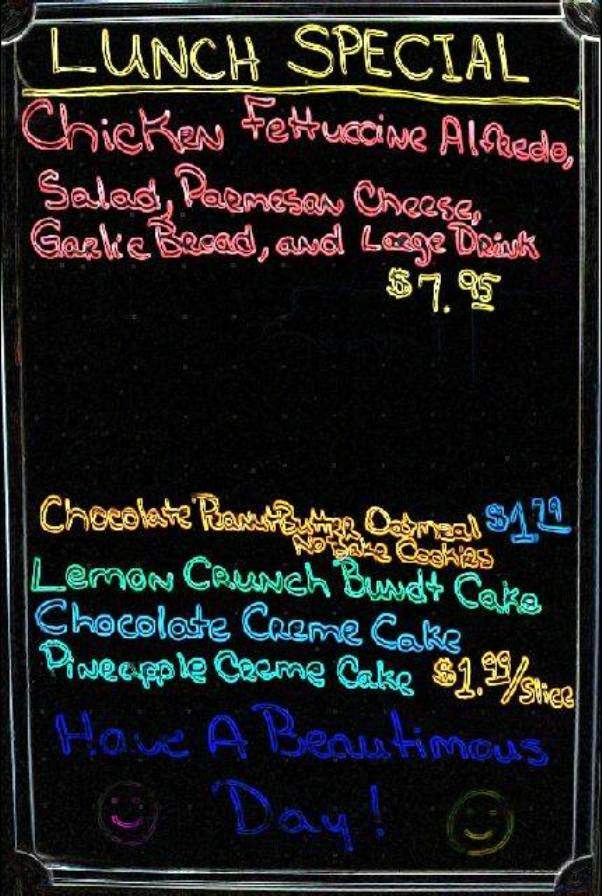 LUNCH SPECIAL
Chicken Fettuccine Alfredo,
Salad, Parmesan Cheese,
Garlic Bread, and Large Drink
$7.95
Chocolate Peanut Butter Oatmeal $1.79
No Bake Cookies
Lemon Crunch Bundt Cake
Chocolate Creme Cake
Pineapple Creme Cake $1.99/slice
Have A Beautimous
Day!